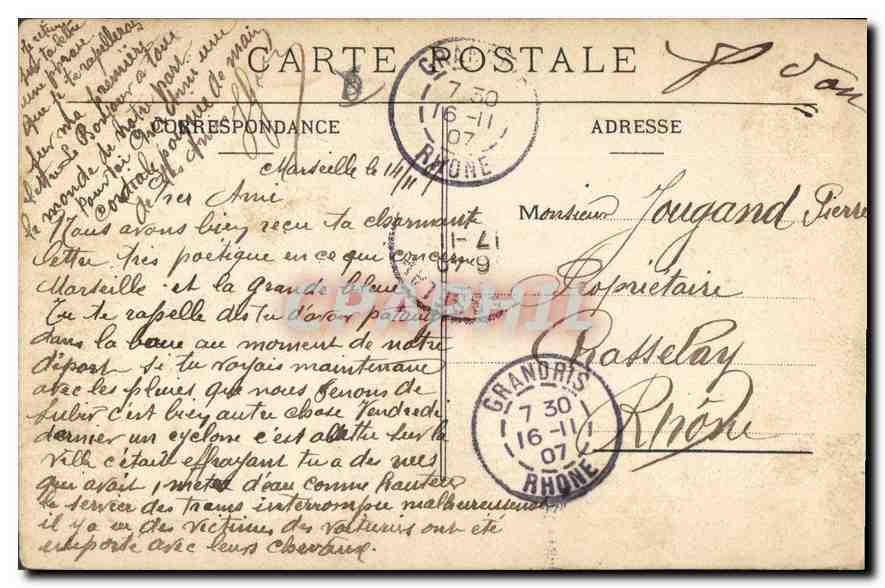 CARTE POSTALE
CORRESPONDANCE
ADRESSE
Marseille le 14/11 7
Cher Ami
Nous avons bien reçu ta charmante
lettre très poétique en ce qui concerne
Marseille et la grande bleue
Tu te rappelle dis tu d'avoir patauge
dans la boue au moment de notre
départ si tu voyais maintenant
avec les pluies que nous venons de
subir c'est bien autre chose Vendredi
dernier un cyclone c'est abattu sur la
ville c'était effrayant tu a des rues
qui avait 1 metre d'eau comme hauteur
le service des trams interrompu malheureusement
il y a eu des victimes des voituriers ont été
emporté avec leurs chevaux.
ta lettre
que je te rappellerai
sur ma
lettre Le Bonjour a tout
le monde de notre part
Pour toi Cher Ami une
cordiale poignée de main
Monsieur Jougand Pierre
Propriétaire
Chasselay
Rhône
GRANDRIS
7 30
16 -11
07
RHONE
17-11
GRANDRIS
7 30
16 -11
07
RHONE
CPAPHIL